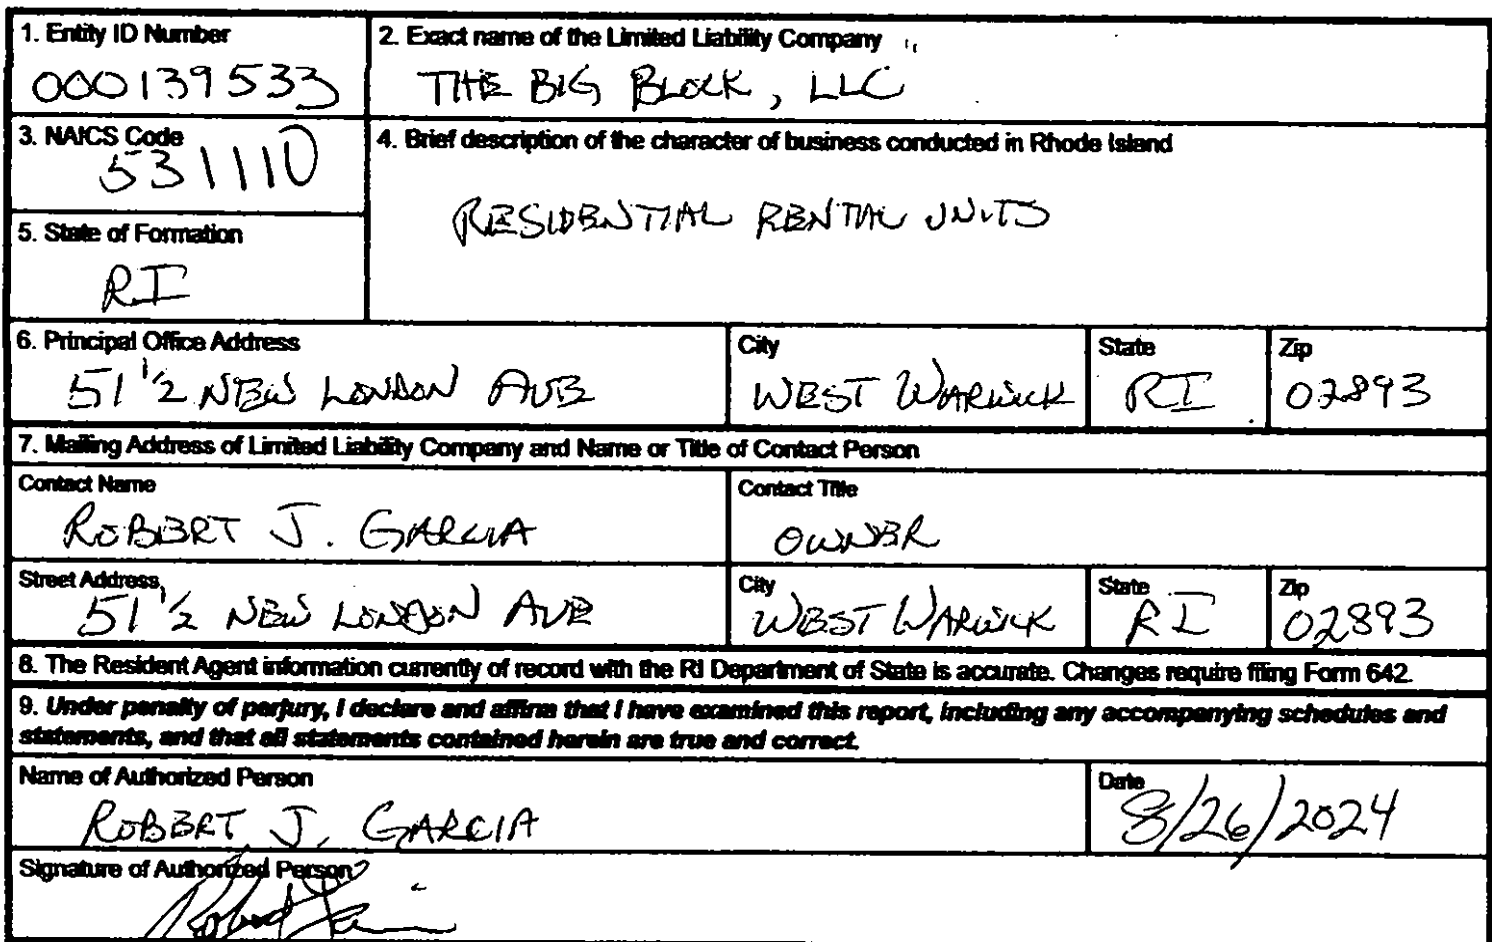 1. Entity ID Number
000139533
2. Exact name of the Limited Liability Company
THE BIG BLOCK, LLC
3. NAICS Code
531110
4. Brief description of the character of business conducted in Rhode Island
RESIDENTIAL RENTAL UNITS
5. State of Formation
RI
6. Principal Office Address
51 1/2 NEW LONDON AVE
City
WEST WARWICK
State
RI
Zip
02893
7. Mailing Address of Limited Liability Company and Name or Title of Contact Person
Contact Name
ROBERT J. GARCIA
Contact Title
OWNER
Street Address
51 1/2 NEW LONDON AVE
City
WEST WARWICK
State
RI
Zip
02893
8. The Resident Agent information currently of record with the RI Department of State is accurate. Changes require filing Form 642.
9. Under penalty of perjury, I declare and affirm that I have examined this report, including any accompanying schedules and
statements, and that all statements contained herein are true and correct.
Name of Authorized Person
ROBERT J. GARCIA
Date
8/26/2024
Signature of Authorized Person